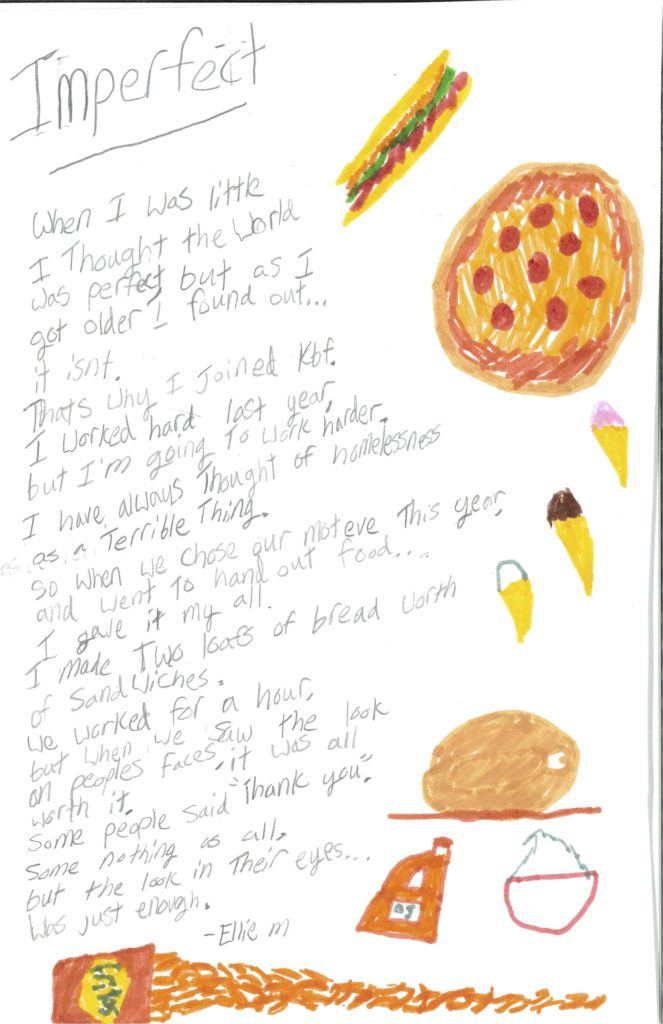 Imperfect
When I was little
I Thought the World
was perfect, but as I
got older I found out...
it isnt.
Thats why I joined Kbf.
I worked hard last year,
but I'm going To work harder.
I have always Thought of homelessness
as a Terrible Thing.
So when we chose our moteve This year,
and went To hand out food....
I gave it my all.
I made Two loafs of bread worth
of Sandwiches.
We worked for a hour,
but when we saw the look
on peoples faces, it was all
worth it.
Some people said "Thank you".
Some nothing as all.
but the look in Their eyes...
Was just enough.
-Ellie m